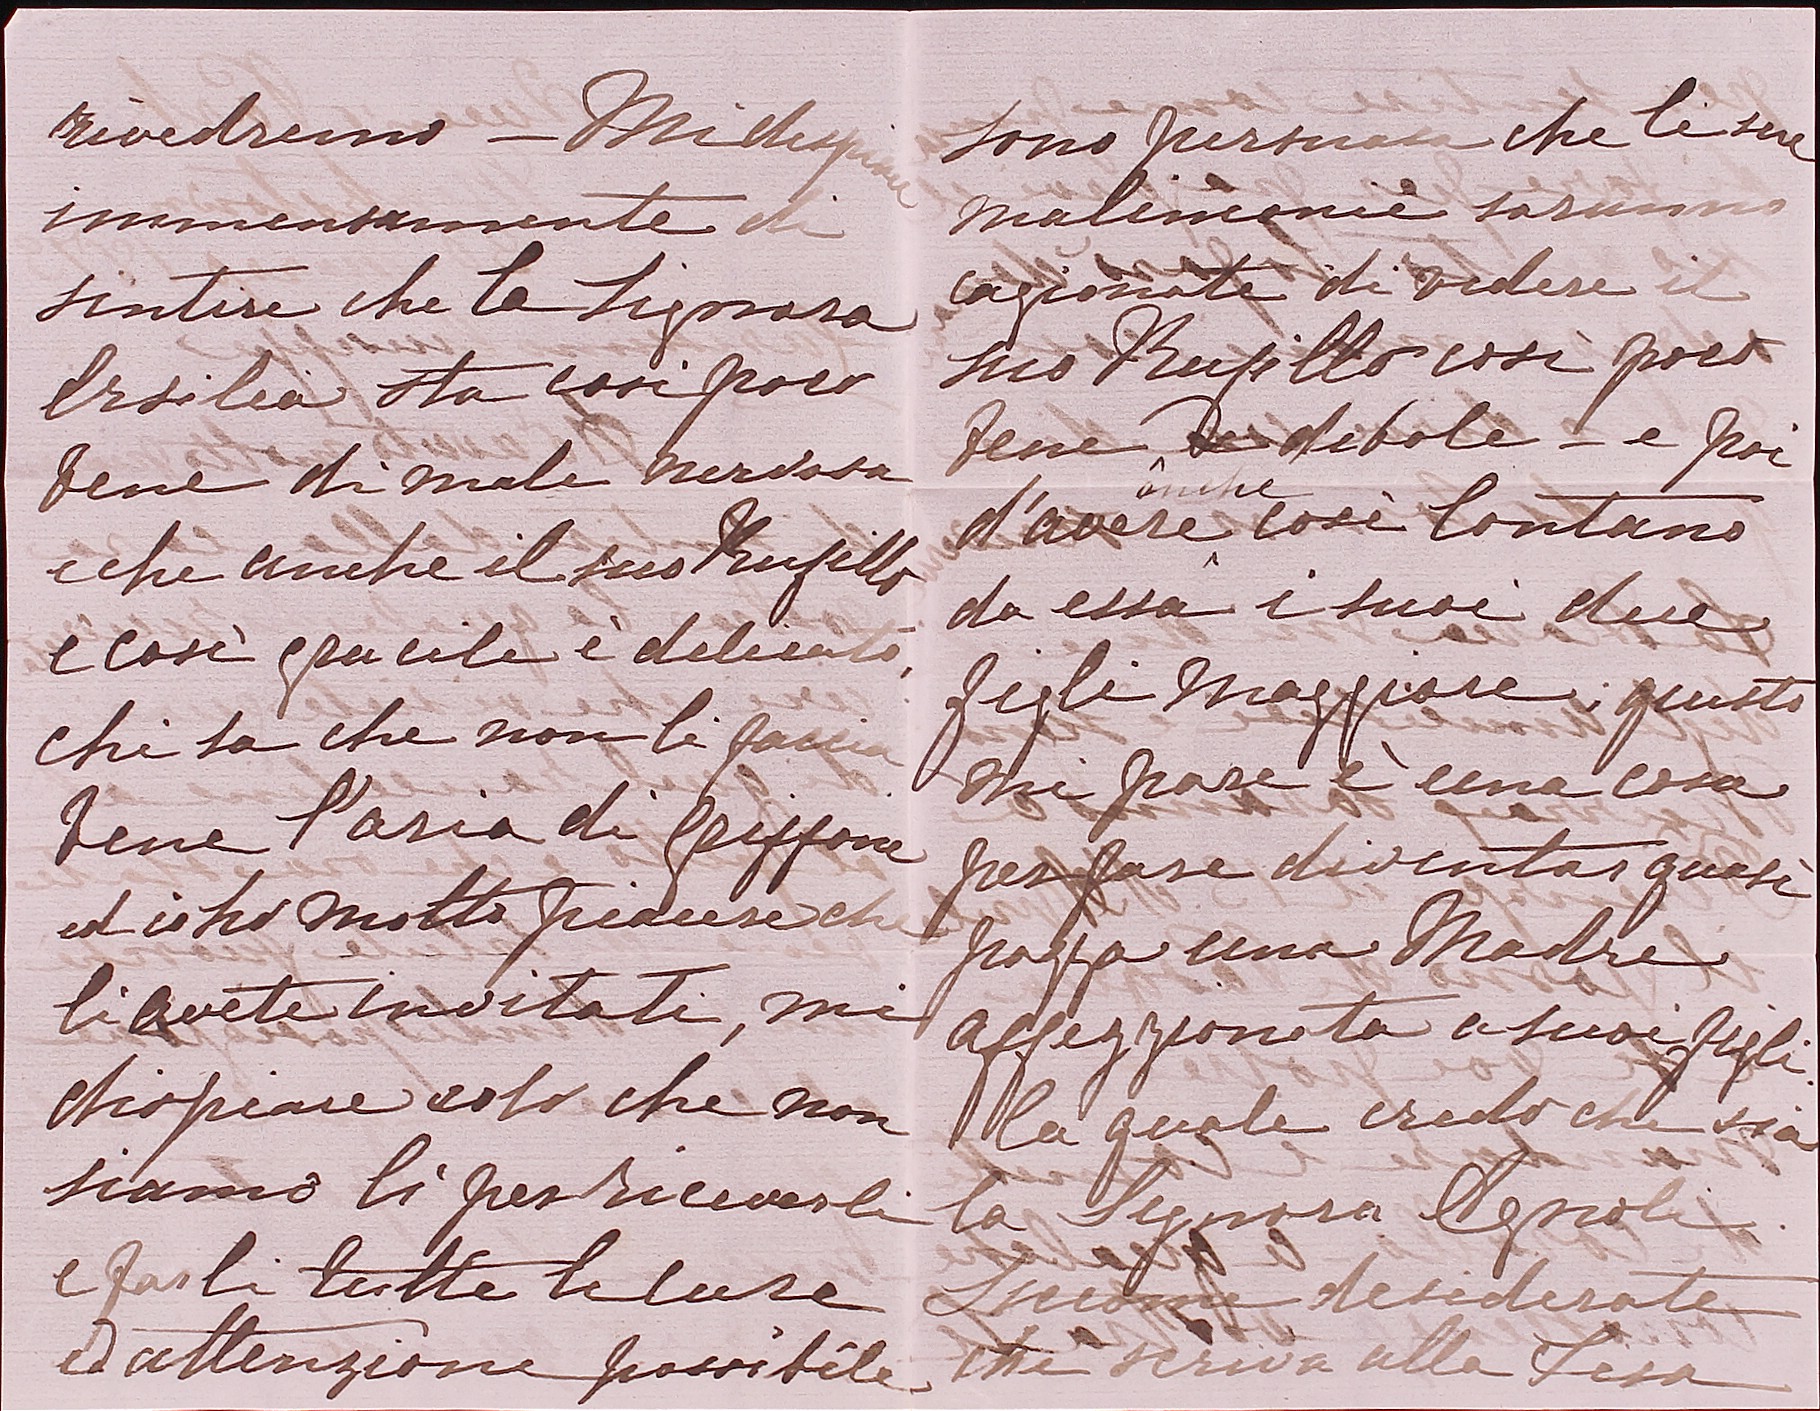 rivedremo – Mi dispiace
immensamente di
sentire che la Signora
Ersilia sta così poco
bene di male nervosa
e che anche il suo Rufillo
e così gracile è delicato,
chi sa che non li faccia
bene l'aria di Griffone
ed io ho molto piacere che
li avete invitati, mi
dispiace solo che non
siamo lì per riceverli
e farli tutte le cure
ed attenzione possibile,
sono persuasa che le sue
malinconie saranno
cagionate di vedere il
suo Rufillo così poco
bene e debole – e poi
d'avere anche così lontano
da essa i suoi due
figli maggiore, questo
mi pare è una cosa
per fare diventar quasi
pazza una Madre
affezzionata a suoi figli.
la quale credo che sia
la Signora Agnoli.
Siccome desiderate
che scriva alla Lisa